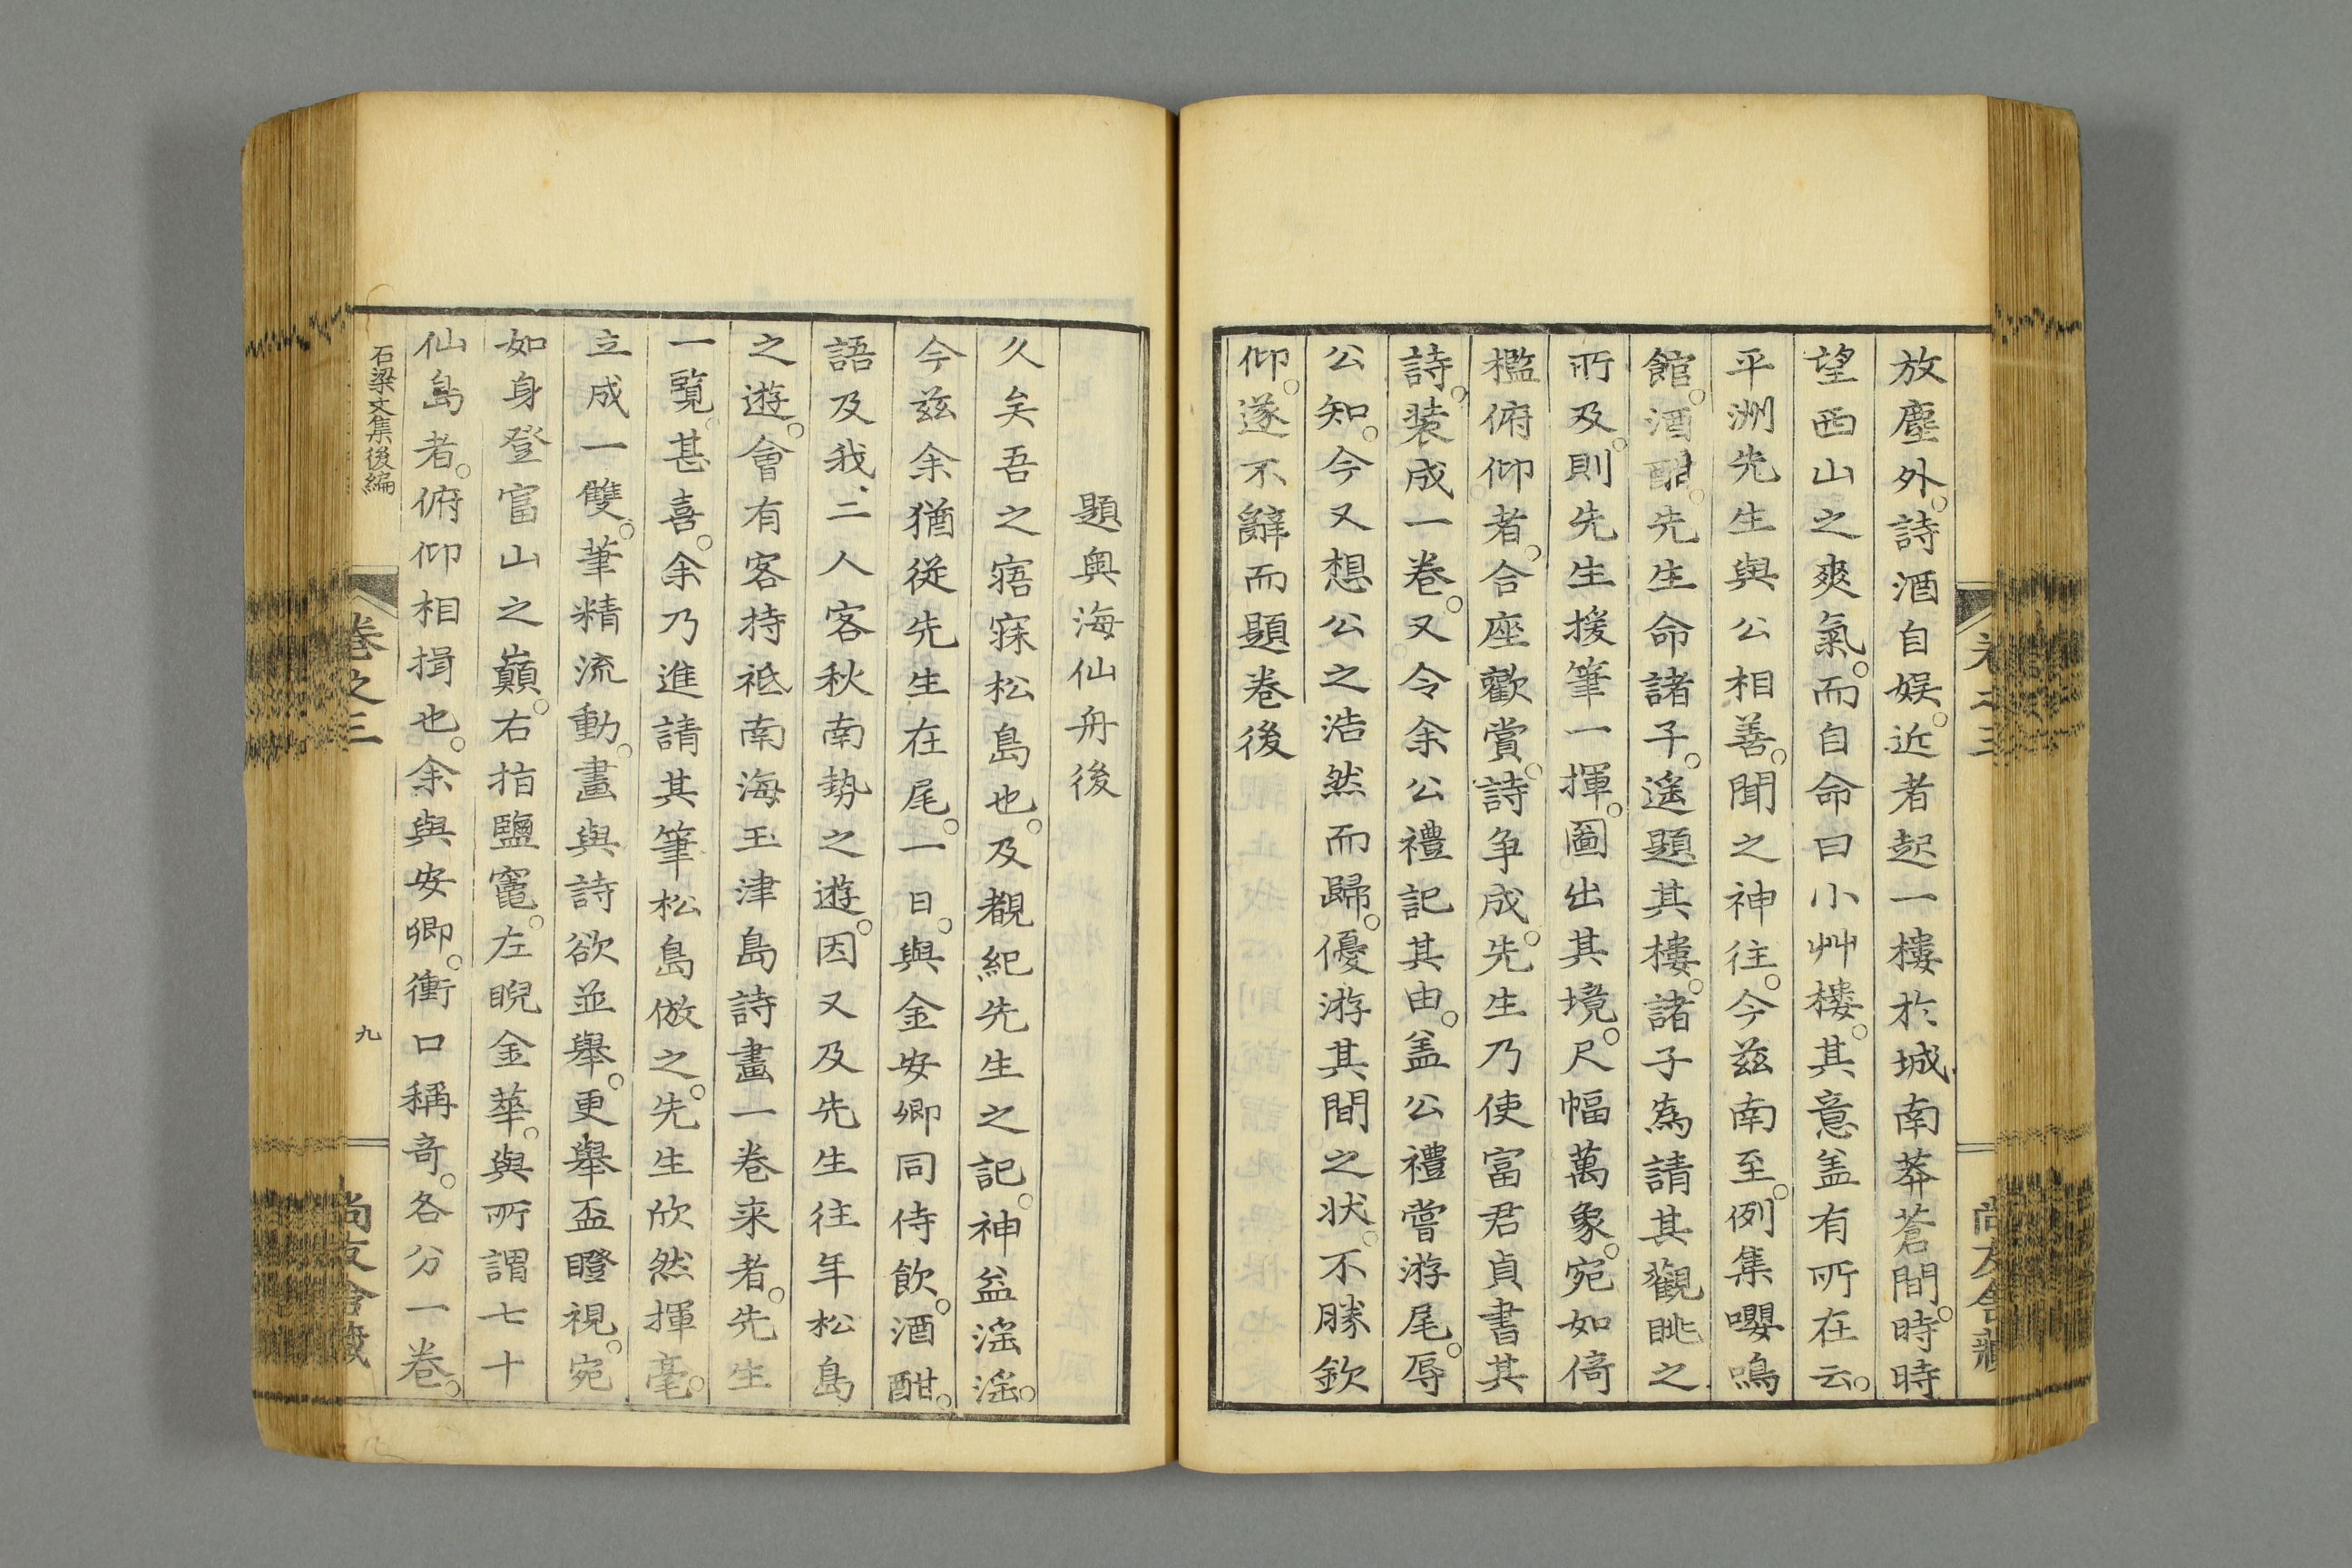 放塵外。詩酒自娯。近者起一樓於城南莽蒼間。時時
望西山之爽氣。而自命曰小艸樓。其意盖有所在云。
平洲先生與公相善。聞之神往。今茲南至。例集嚶鳴
館。酒酣。先生命諸子。遙題其樓。諸子為請其觀眺之
所及。則先生援筆一揮。圖出其境。尺幅萬象。宛如倚
檻俯仰者。合座歡賞。詩争成。先生乃使富君貞書其
詩。装成一卷。又令余公禮記其由。盖公禮嘗游尾。辱
公知。今又想公之浩然而歸。優游其間之状。不勝欽
仰。遂不辭而題卷後
題奥海仙舟後
久矣吾之寤寐松島也。及覩紀先生之記。神益滛滛。
今茲余猶從先生在尾。一日。與金安卿同侍飲。酒酣。
語及我二人客秋南勢之遊。因又及先生往年松島
之遊。會有客持祗南海玉津島詩畫一卷来者。先生
一覧甚喜。余乃進請其筆松島倣之。先生欣然揮毫。
立成一雙。筆精流動。畫與詩欲並舉。更舉盃瞪視。宛
如身登富山之巓。右指鹽竃。左睨金華。與所謂七十
仙島者。俯仰相揖也。余與安卿。衝口稱奇。各分一卷。
石梁文集後編
卷之三
九